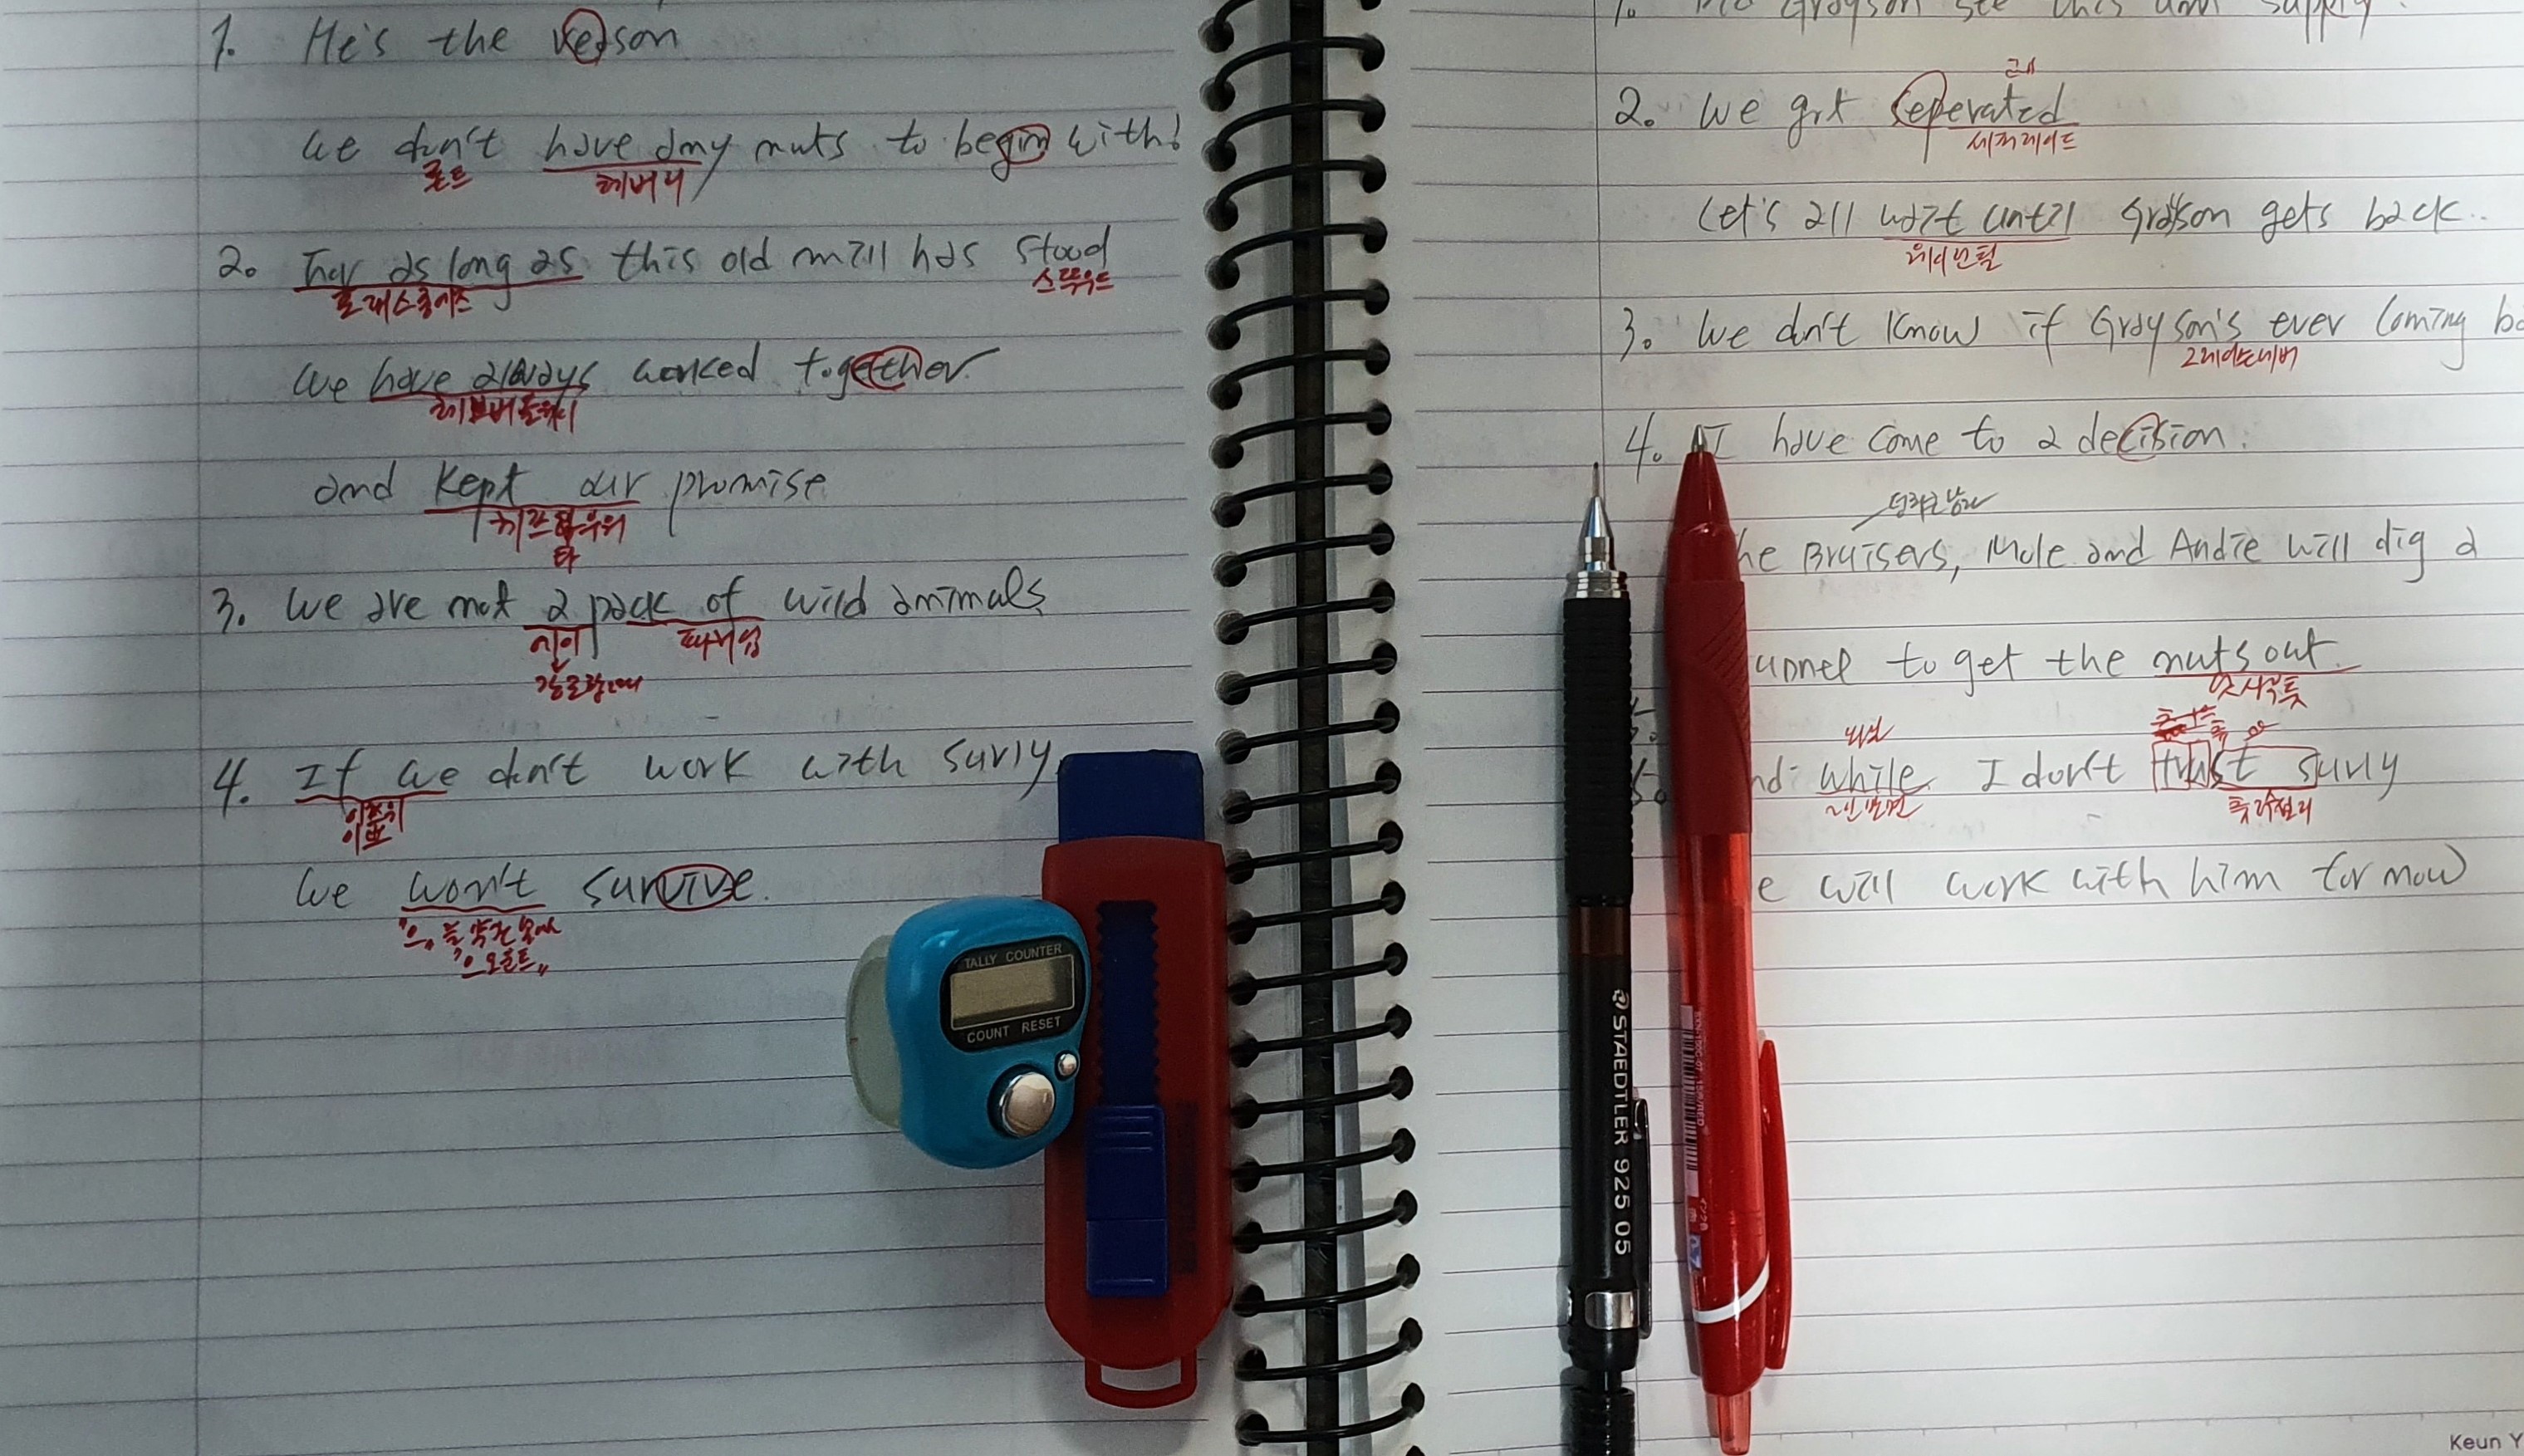 1. He's the reason
We don't have any nuts to begin with!
론트 해버니
2. For as long as this old mill has stood
스뚜우드
We have always worked together
and kept our promise
3. We are not a pack of wild animals
에이
4. If we don't work with surly
We won't survive.
TALLY COUNTER
COUNT RESET
1. Did Grayson see this and supply.
레
2. We got seperated
세퍼레이트
Let's all wait until Grayson gets back..
웨이언틸
3. We don't know if Grayson's ever coming
4. I have come to a decision.
he Bruisers, Mole and Andie will dig a
unnel to get the nuts out.
nd while I don't trust surly
e will work with him for now
STAEDTLER 925 05
0.7
Keun Y